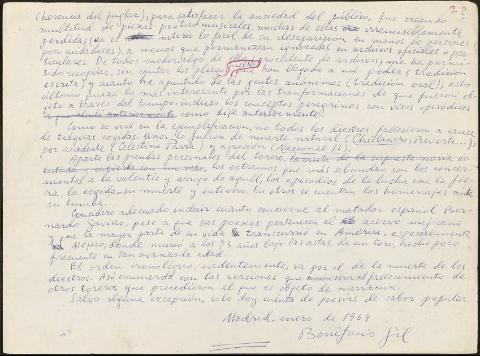 2 8
(herencia del juglar), para satisfacer la ansiedad del público, fue creando
multitud de piezas poético-musicales, muchas de ellas irremisiblemente
perdidas, es notorio lo fácil de su desaparición en manos de personas
poco cuidadosas), a menos que permanezcan ignoradas en archivos oficiales o par-
ticulares. De todos modos, algo de (procedente de archivos) me ha permi-
tido recopilar, sin contar los pliegos sueltos que han llegado a mi poder (tradición
escrita) y cuanto he apuntado de las gentes anónimas (tradición oral); esto
último quizá lo más interesante por las transformaciones de que fueron ob-
jeto a través del tiempo; incluso los conceptos peregrinos con visos episódicos
como dije anteriormente.
Como se verá en la ejemplificación, no todos los diestros fallecieron a causa
de trágicas cogidas. Unos, lo fueron de muerte natural (Chiclanero, Reverte...),
por accidente (Celestino Parra) y agresión (Nacional II).
Aparte las prendas personales del torero,
los extremos que más abundan son los concer-
nientes a la valentía y arrojo de aquél, los episodios de la lucha con la fie-
ra, la cogida, su muerte y entierro. En otros se cuentan los homenajes ante
su tumba.
Considero adecuado incluir cuanto concierne al matador español Ber-
nardo Gaviño, pese a que sus poesías pertenecen al acervo mejicano
y que la mayor parte de su vida transcurrió en América, especialmente
Méjico, donde murió a los 73 años bajo las astas de un toro, hecho poco
frecuente en tan avanzada edad.
El orden cronológico, evidentemente, va por el de la muerte de los
diestros. Así comenzará con las versiones que anuncian el fallecimiento de
otros toreros que precedieron al que es objeto de narración.
Salvo alguna excepción, sólo doy cuenta de poesías de sabor popular
Madrid, enero de 1964
Bonifacio Gil